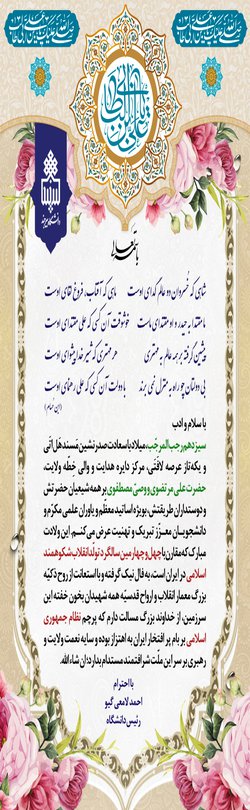 باسمه تعالی
شاهی که خسروان دو عالم گدای اوست
ماهی که آفتاب، فروغ لقای اوست
ما مقتدا به حیدر و او مقتدای ماست
خوشوقت آن کسی که علی مقتدای اوست
پیشی گرفته بر همه عالم به مهتری
هر مهتری که شیر خدا پیشوای اوست
بی دولتان چو راه به منزل نمی برند
با دولت آن کسی که علی رهنمای اوست
(ابن حسام)
با سلام و ادب
سیزدهم رجب المرجب، میلاد با سعادت صدر نشین مَسند هَل اَتی
و یکه تاز عرصه لافَتی، مرکز دایره هدایت و والی خِطّه ولایت،
حضرت علی مرتضوی و وصیّ مصطفوی بر همه شیعیان حضرتش
و دوستداران طریقتش، بویژه اساتید معظّم و یاوران علمی مکرّم و
دانشجویان معزّز تبریک و تهنیت عرض می کنیم. این ولادت
مبارک که مقارن با چهل و چهارمین سالگرد تولد انقلاب شکوهمند
اسلامی در ایران است، به فال نیک گرفته و با استعانت از روح ذکیّه
بزرگ معمار انقلاب و ارواح قدسیّه همه شهیدان بخون خفته این
سرزمین، از خداوند بزرگ مسألت دارم که پرچم نظام جمهوری
اسلامی بر بام پر افتخار ایران به اهتزاز بوده و سایه نعمت ولایت و
رهبری بر سر این ملّت شرافتمند مستدام بدارد ان شاء الله.
با احترام
احمد لامعی گیو
رئیس دانشگاه